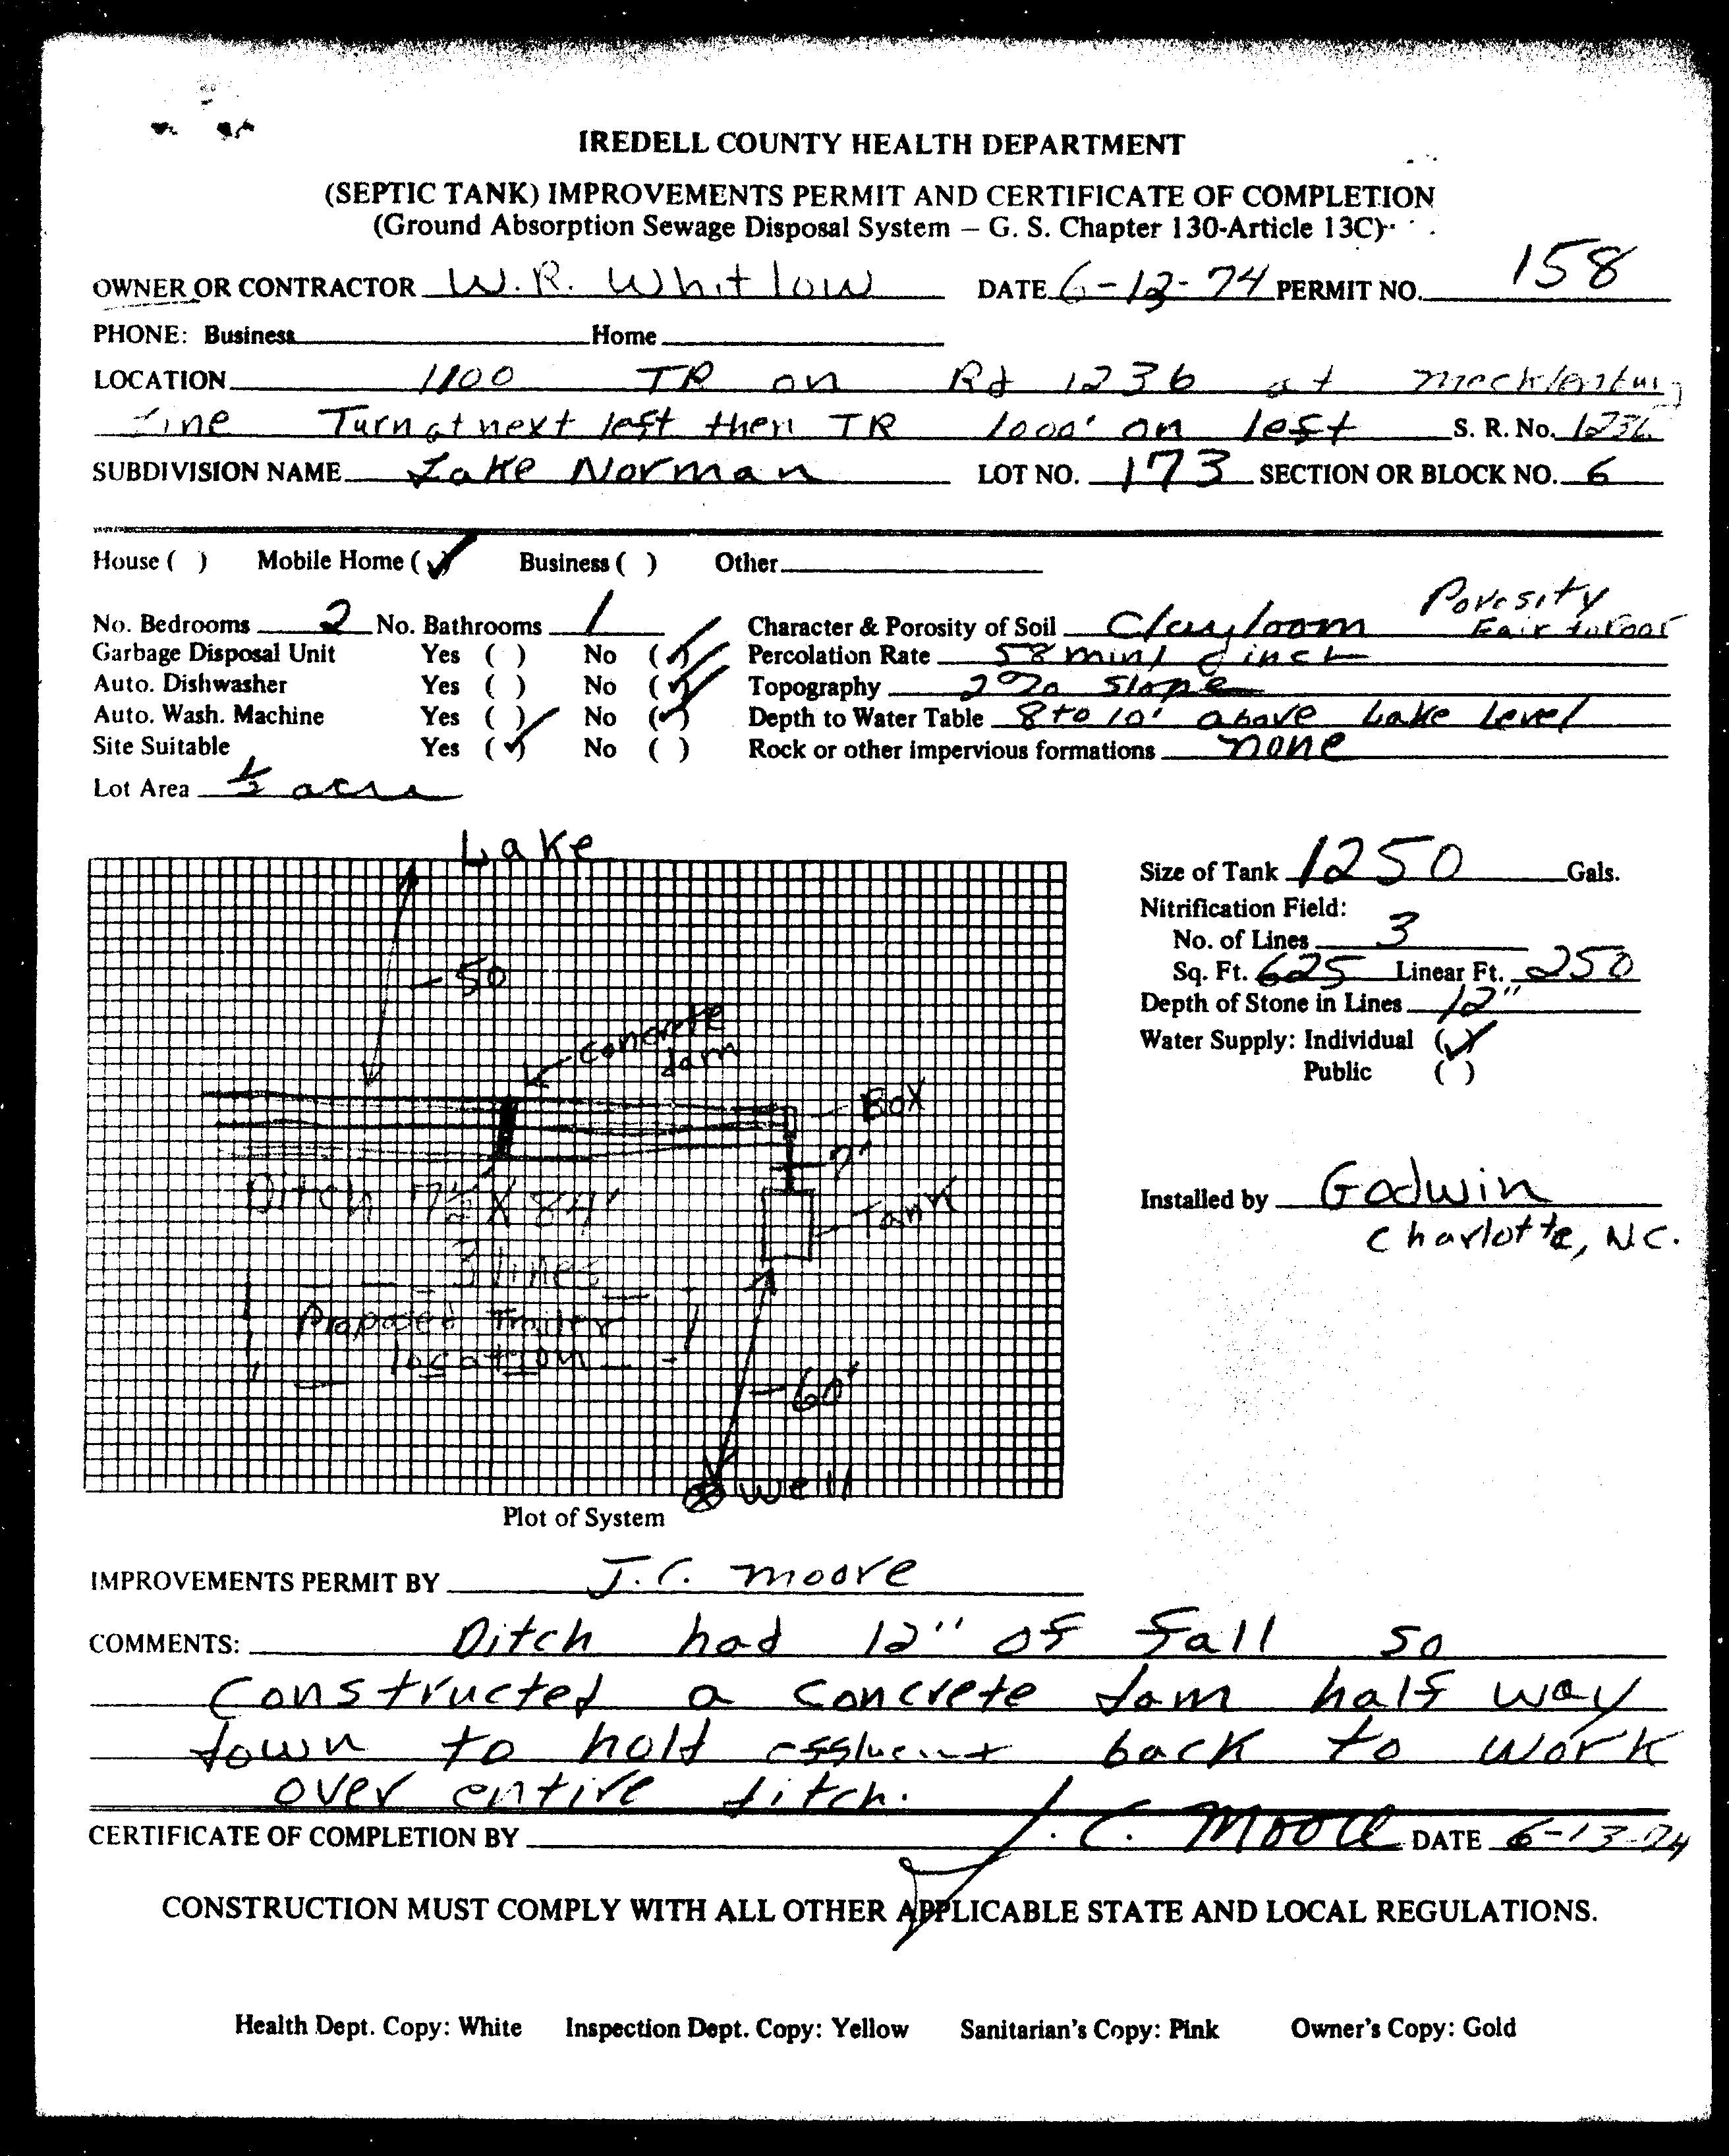 IREDELL COUNTY HEALTH DEPARTMENT
(SEPTIC TANK) IMPROVEMENTS PERMIT AND CERTIFICATE OF COMPLETION
(Ground Absorption Sewage Disposal System – G. S. Chapter 130-Article 13C)
OWNER OR CONTRACTOR W.R. Whitlow DATE 6-12-74 PERMIT NO. 158
PHONE: Business Home
LOCATION 1100 TR on Rd 1236 at Mecklenburg
Line Turn at next left then TR 1000' on left S. R. No. 1236
SUBDIVISION NAME Lake Norman LOT NO. 173 SECTION OR BLOCK NO. 6
House ( ) Mobile Home (✓) Business ( ) Other
No. Bedrooms 2 No. Bathrooms 1 Character & Porosity of Soil Clay loam Porosity Fair to Poor
Garbage Disposal Unit Yes ( ) No (✓) Percolation Rate 58 min/ inch
Auto. Dishwasher Yes ( ) No (✓) Topography 2% slope
Auto. Wash. Machine Yes ( ) No (✓) Depth to Water Table 8 to 10' above Lake Level
Site Suitable Yes (✓) No ( ) Rock or other impervious formations none
Lot Area 1/2 acre
Lake
Size of Tank 1250 Gals.
Nitrification Field:
No. of Lines 3
Sq. Ft. 625 Linear Ft. 250
Depth of Stone in Lines 12"
Water Supply: Individual (✓)
Public ( )
50
concrete
dam
Box
7'
Ditch 7½ X 84'
Tank
3 lines
Proposed Trailer
location
60'
Well
Installed by Godwin
Charlotte, N.C.
Plot of System
IMPROVEMENTS PERMIT BY J.C. Moore
COMMENTS: Ditch had 12" of fall so
constructed a concrete dam half way
down to hold effluent back to work
over entire ditch.
CERTIFICATE OF COMPLETION BY J. C. Moore DATE 6-13-74
CONSTRUCTION MUST COMPLY WITH ALL OTHER APPLICABLE STATE AND LOCAL REGULATIONS.
Health Dept. Copy: White Inspection Dept. Copy: Yellow Sanitarian's Copy: Pink Owner's Copy: Gold